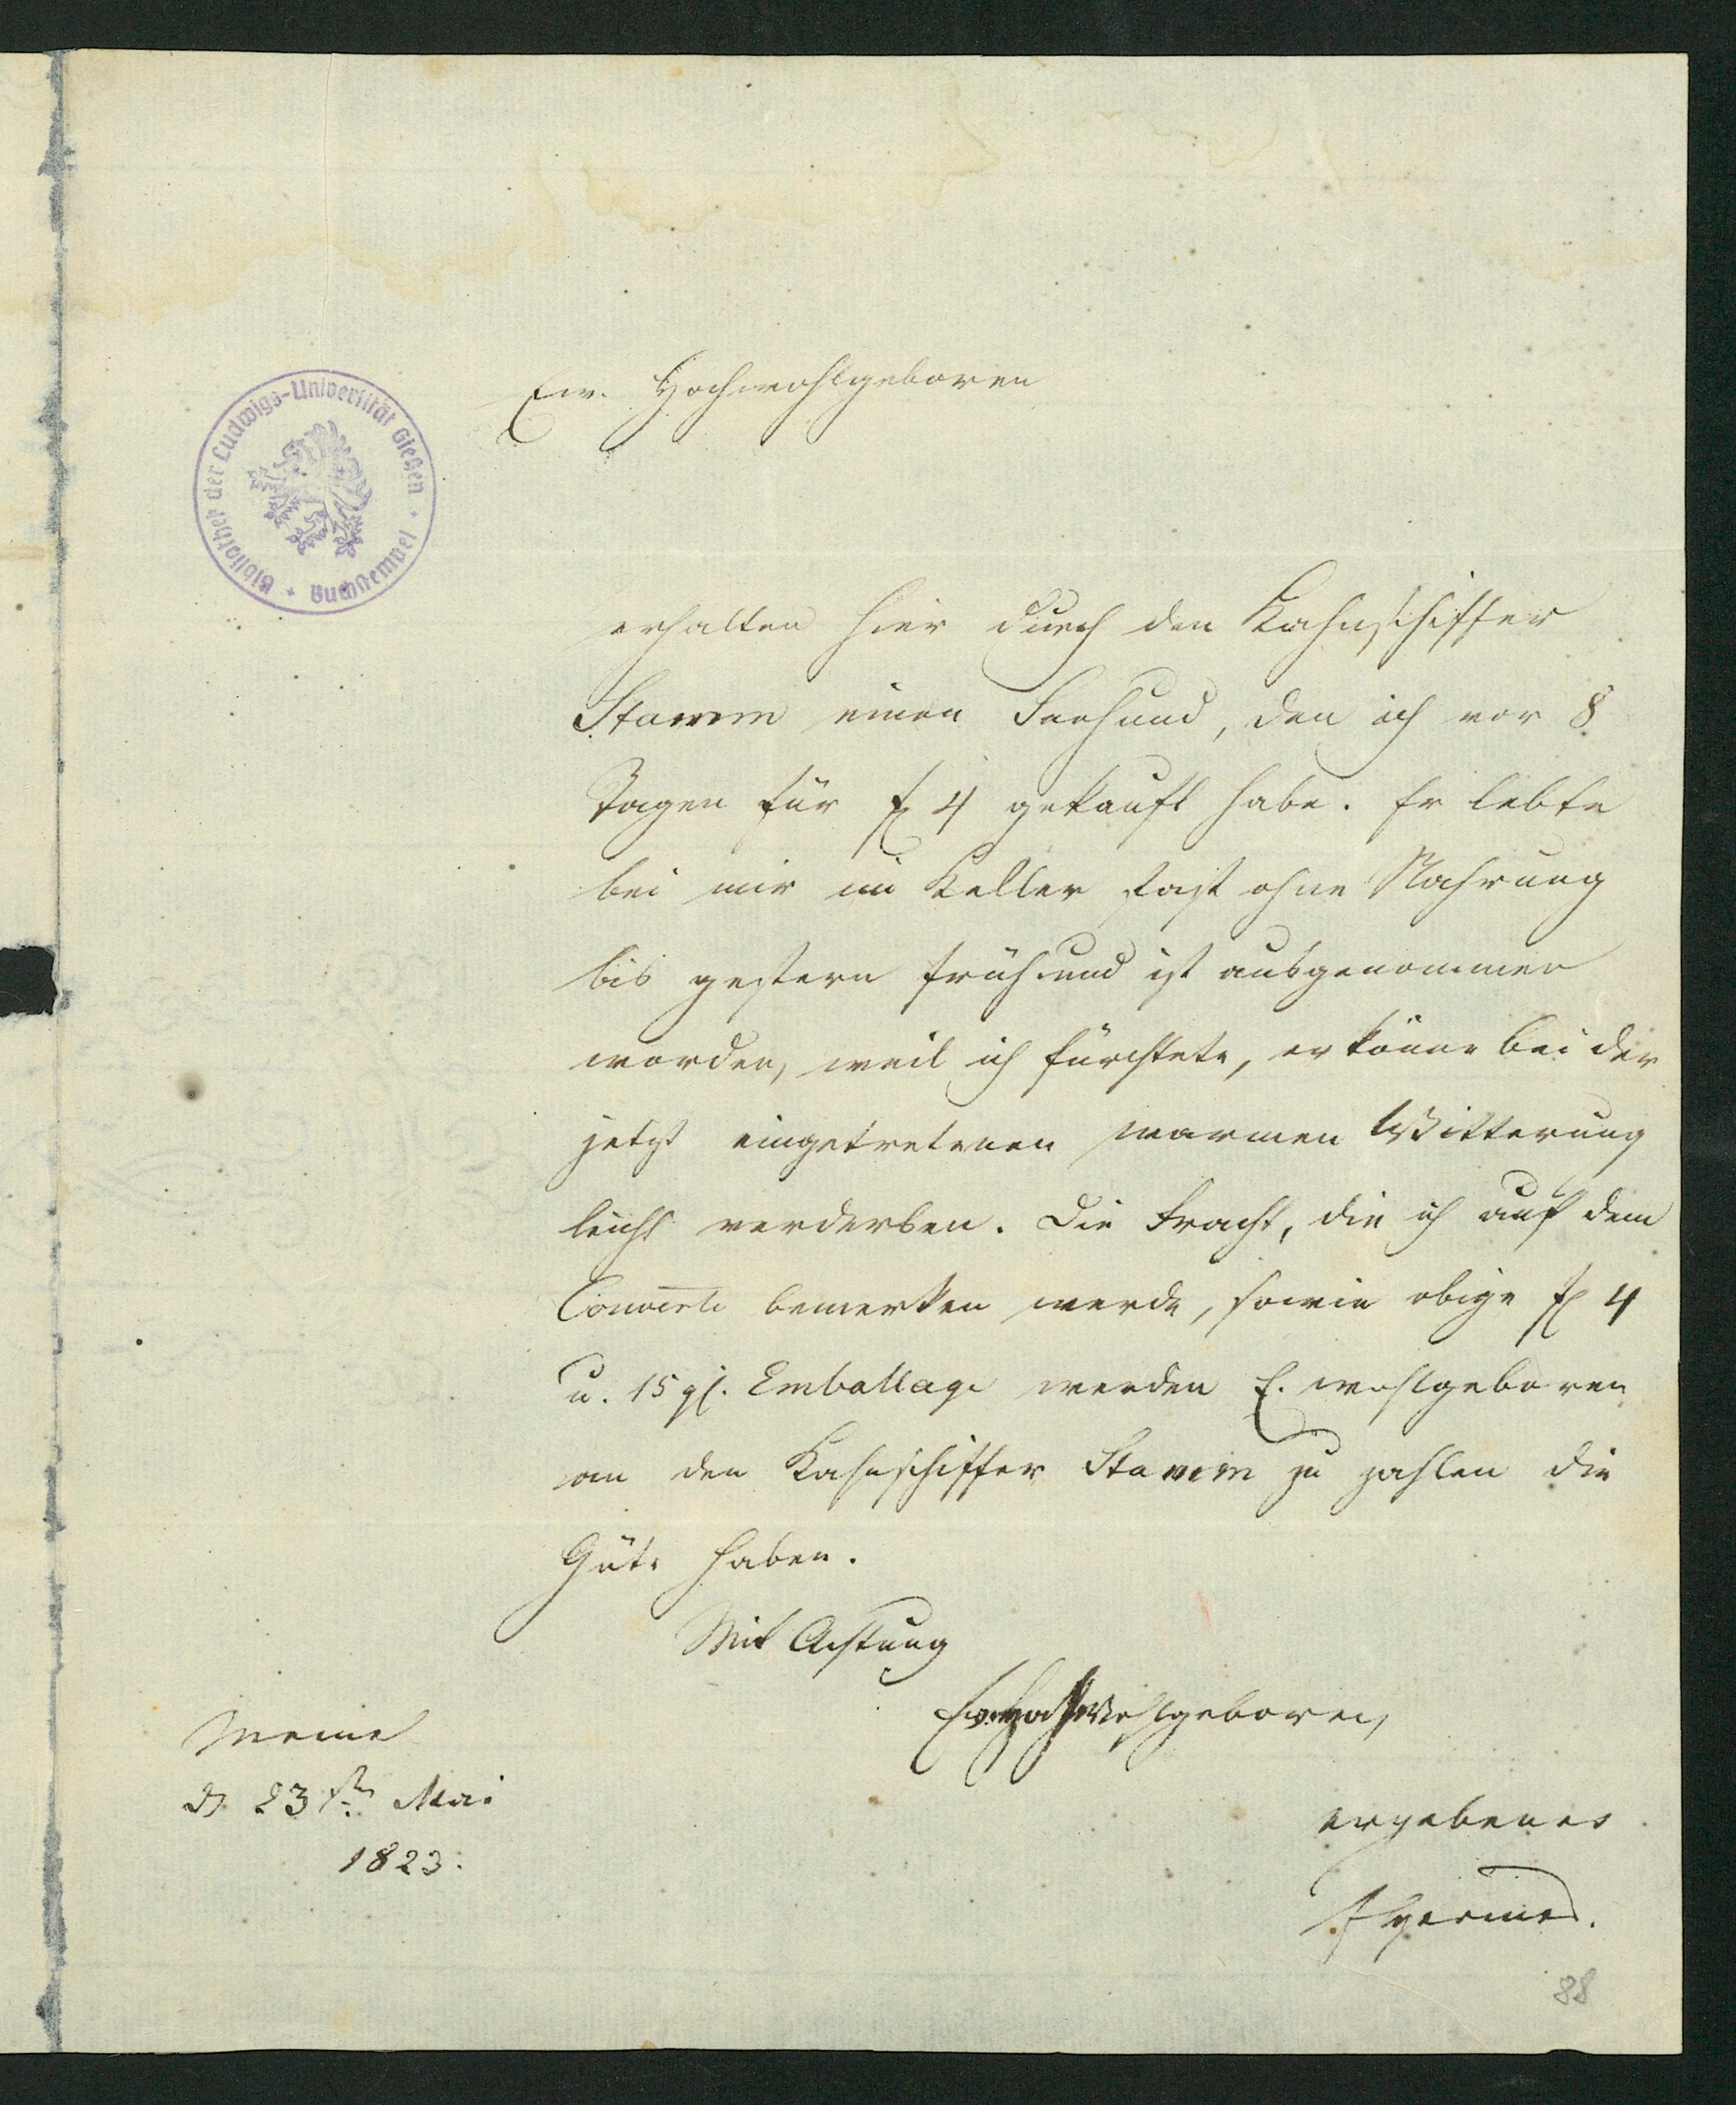 Ew. Hochwohlgeboren
Bibliothek der Ludwigs-Universität Gießen
Buchstempel
erhalten hier durch den Kahnschiffer
Stamm einen Seehund, den ich vor 8
Tagen für 4 gekauft habe. Er lebte
bei mir im Keller fast ohne Nahrung
bis gestern früh und ist ausgenommen
worden, weil ich fürchtete, er könne bei der
jetzt eingetretenen warmen Witterung
leicht verderben. Die Fracht, die ich auf dem
Couverte bemerken werde, sowie obige 4
u. 15 gl. Emballage werden E. wohlgeboren
an den Kahnschiffer Stamm zu zahlen die
Güte haben.
Mit Achtung
Ew. Hochwohlgeboren
ergebener
Memel
d 23ten Mai
1823.
88